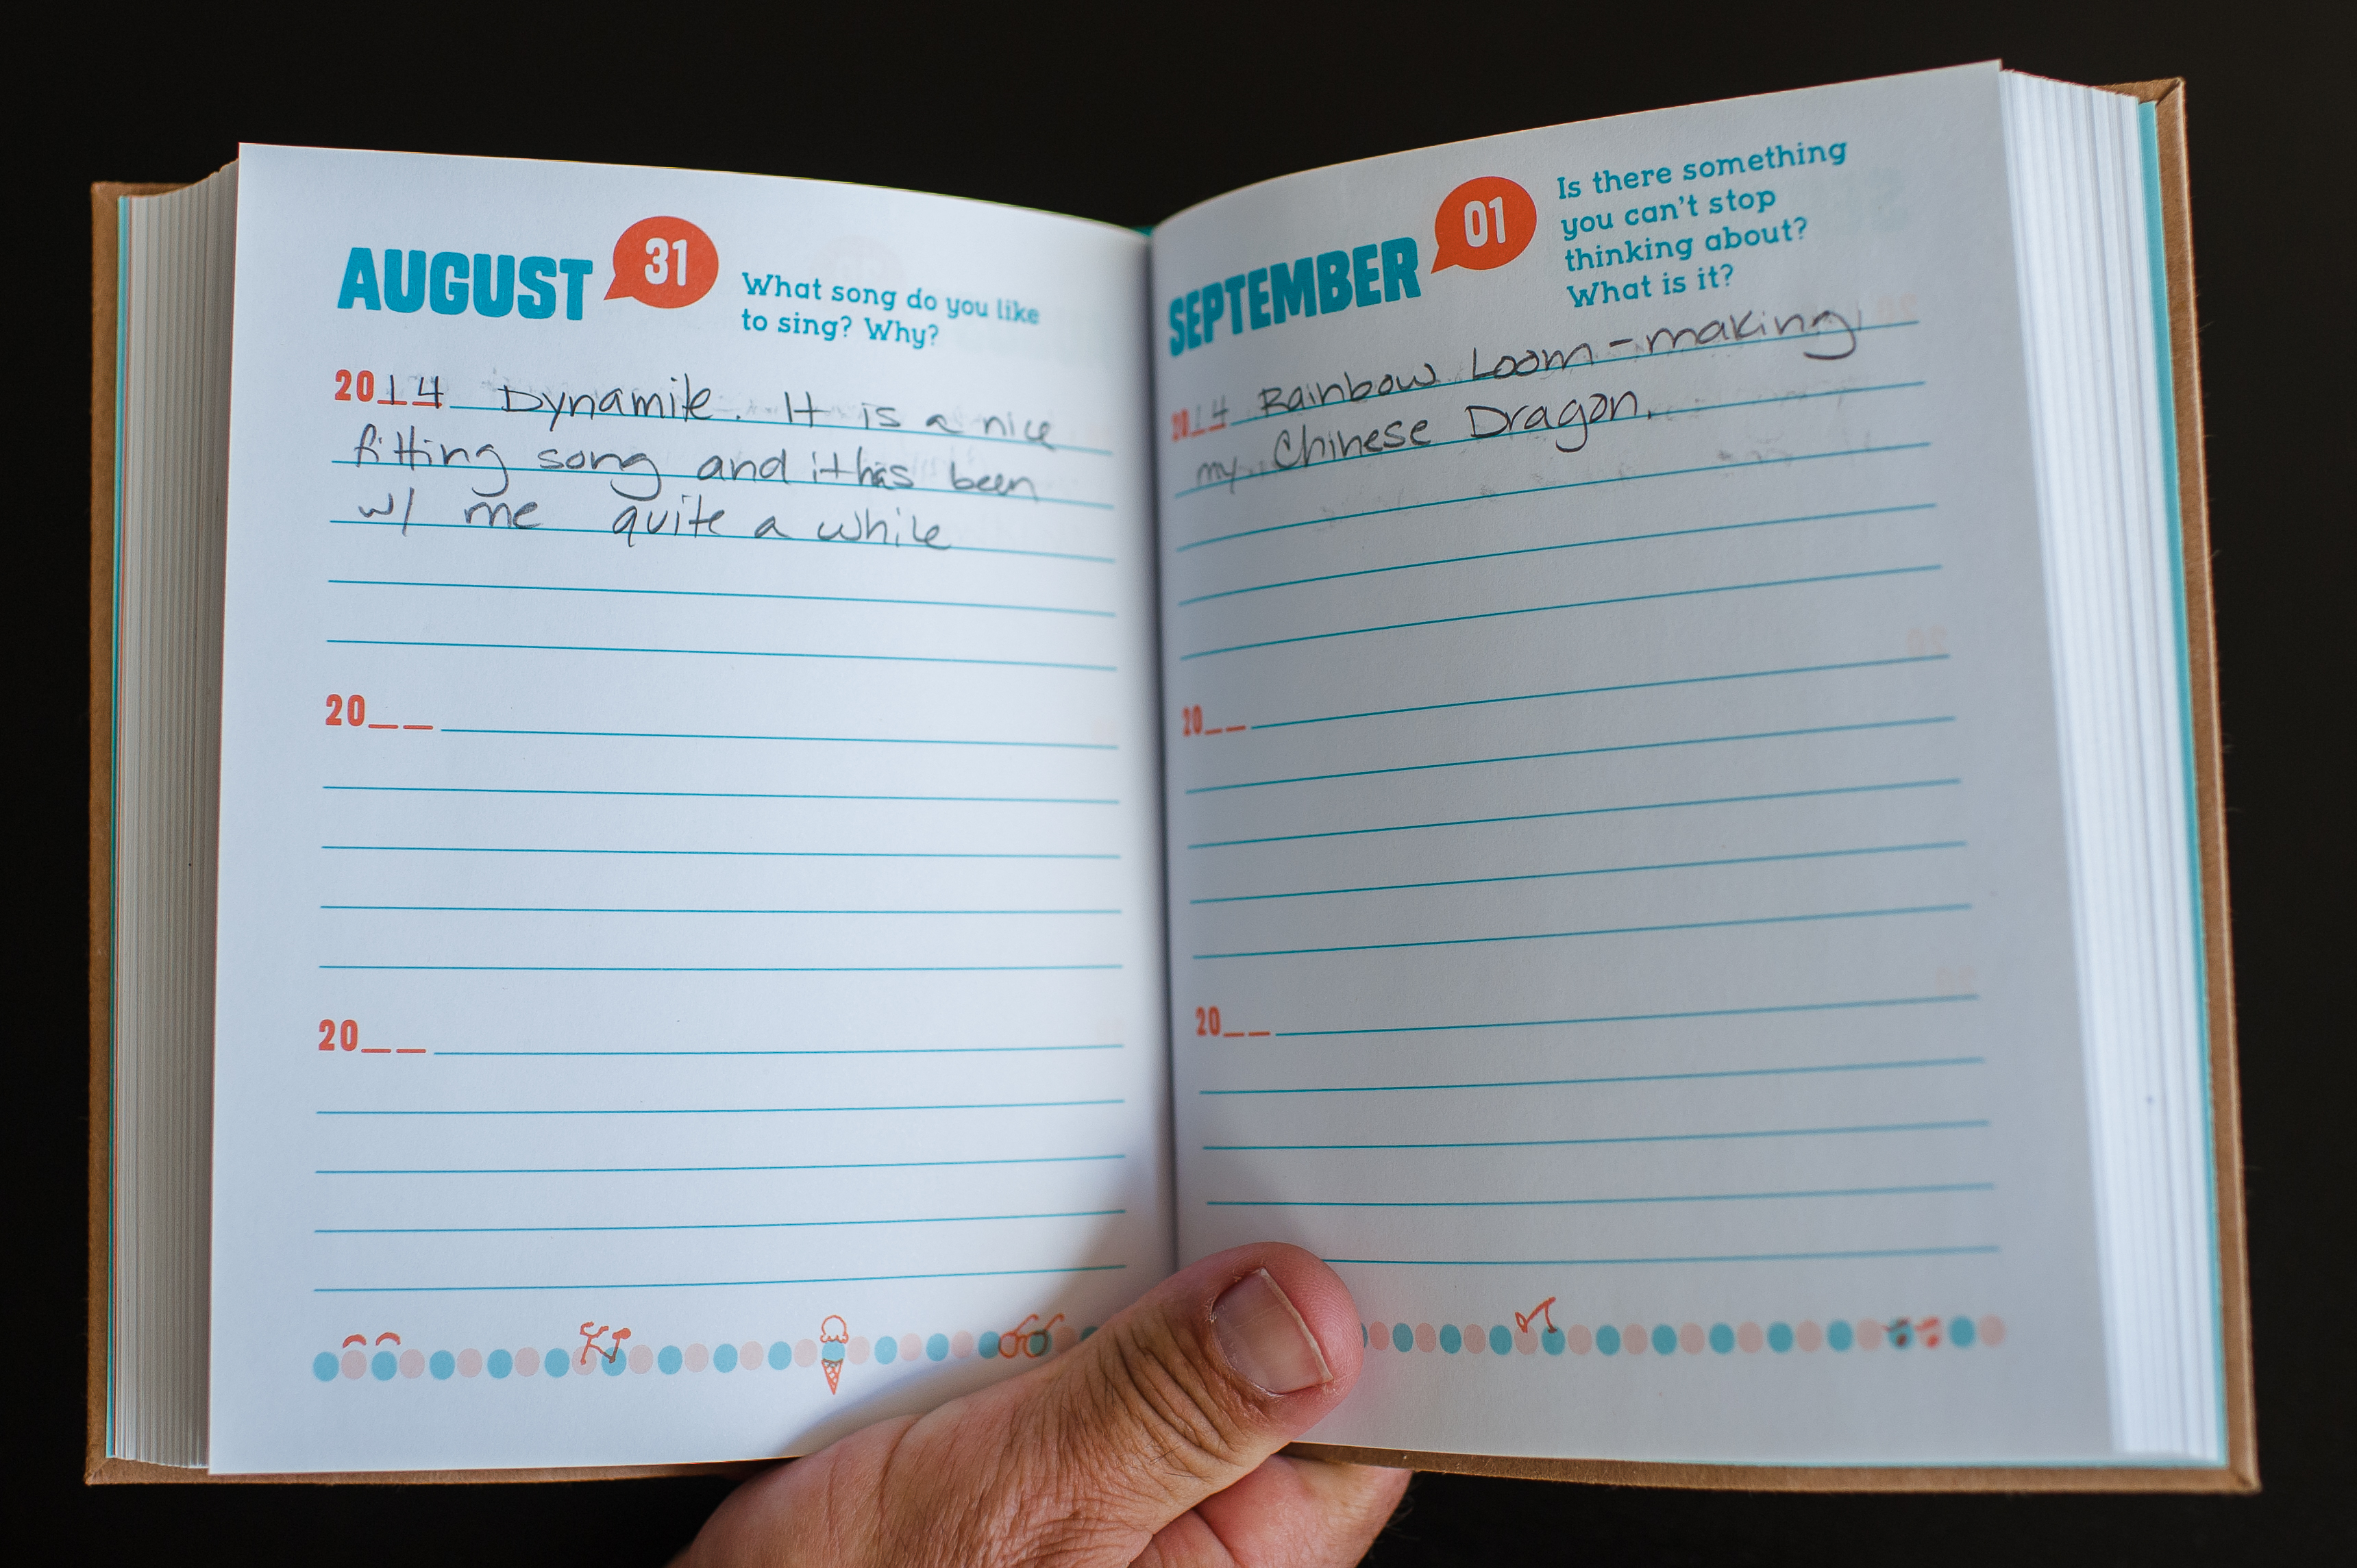 AUGUST 31
What song do you like
to sing? Why?
2014 Dynamite. It is a nice
fitting song and it has been
w/ me quite a while
20__
20__
SEPTEMBER 01
Is there something
you can't stop
thinking about?
What is it?
2014 Rainbow Loom - making
my Chinese Dragon.
20__
20__